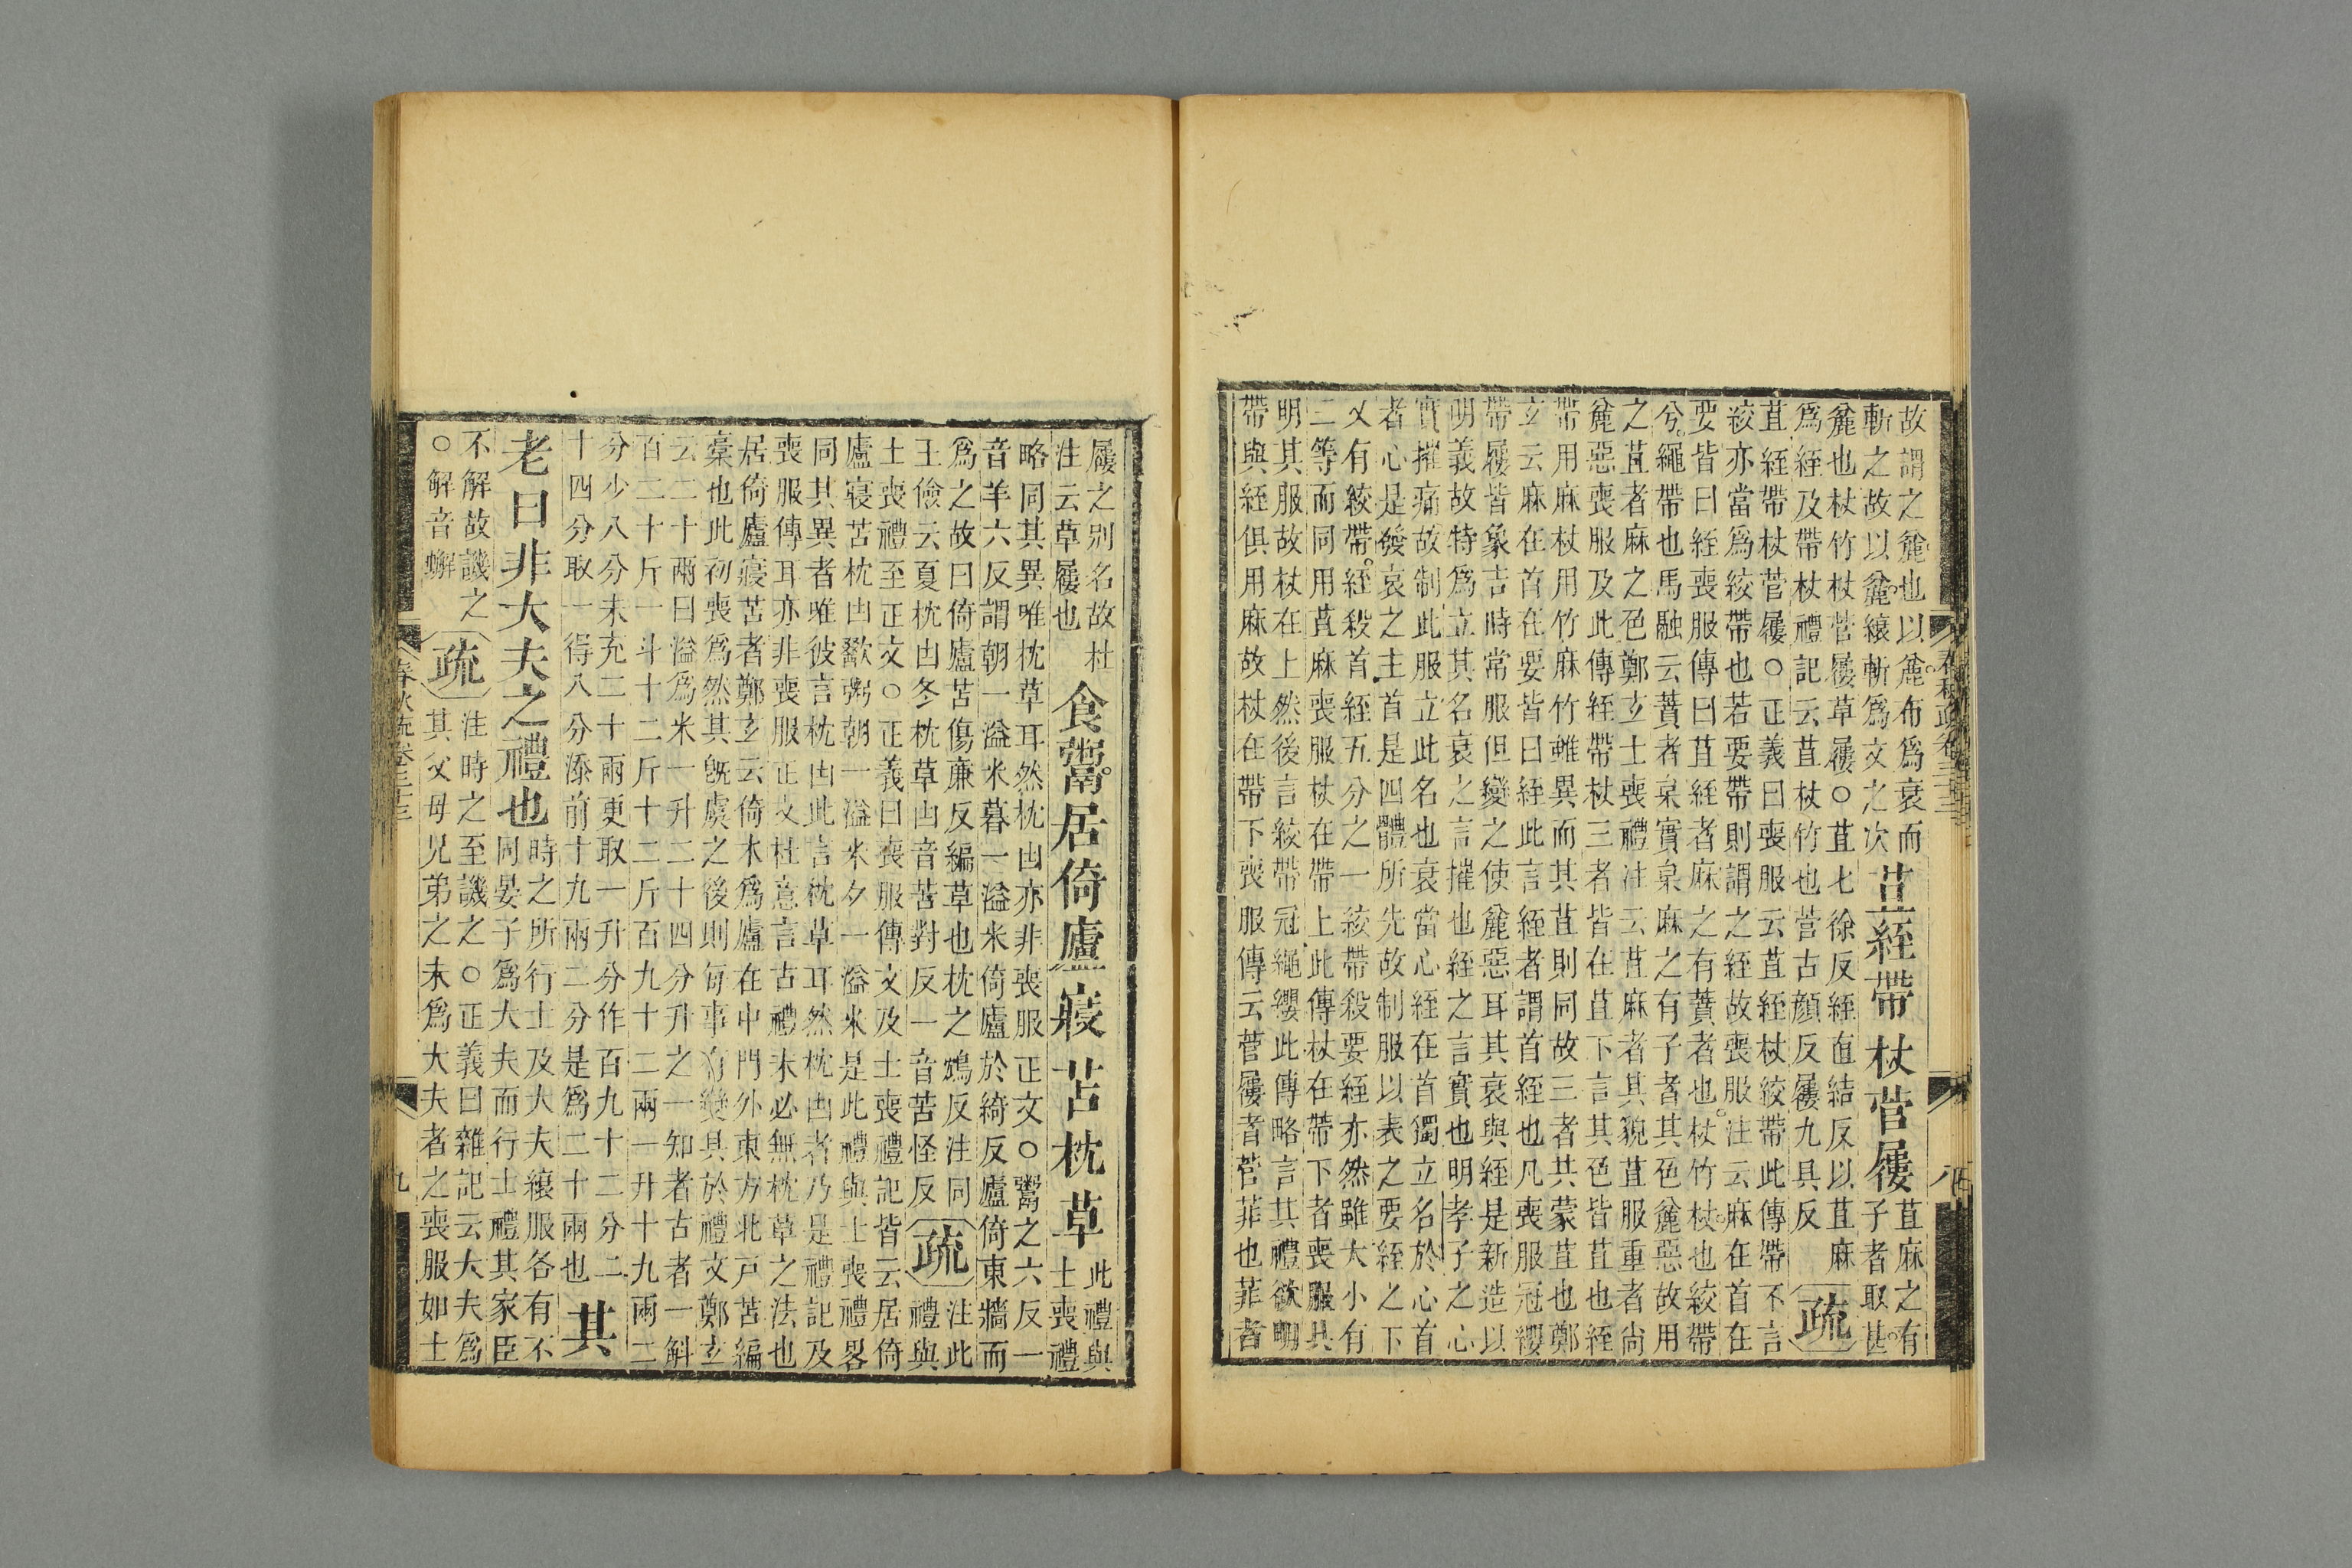 故謂之麄也以麄布爲衰而
斬之故以麄縗斬爲文之次
苴絰帶杖菅屨
苴麻之有
子者取其
麄也杖竹杖菅屨草屨○苴七徐反絰直結反以苴麻
爲絰及帶杖禮記云苴杖竹也菅古顏反屨九具反
疏
苴絰帶杖菅屨○正義曰喪服云苴絰杖絞帶此傳帶不言
絞亦當爲絞帶也若要帶則謂之絰故喪服注云麻在首在
要皆曰絰喪服傳曰苴絰者麻之有蕡者也杖竹杖也絞帶
兮繩帶也馬融云蕡者枲實枲麻之有子者其色麄惡故用
之苴者麻之色鄭玄士喪禮注云苴麻者其貌苴服重者尚
麄惡喪服及此傳絰帶杖三者皆在苴下言其色皆苴也絰
帶用麻杖用竹麻竹雖異而其苴則同故三者共蒙苴也鄭
玄云麻在首在要皆曰絰此言絰者謂首絰也凡喪服冠纓
帶屨皆象吉時常服但變之使麄惡耳其衰與絰是新造以
明義故特爲立其名衰之言摧也絰之言實也明孝子之心
實摧痛故制此服立此名也衰當心絰在首獨立名於心首
者心是發哀之主首是四體所先故制服以表之要絰之下
又有絞帶絰殺首絰五分之一絞帶殺要絰亦然雖大小有
二等而同用苴麻喪服杖在帶上此傳杖在帶下者喪服具
明其服故杖在上然後言絞帶冠繩纓此傳略言其禮欲明
帶與絰俱用麻故杖在帶下喪服傳云菅屨者菅菲也菲者
屨之別名故杜
注云草屨也
食鬻居倚廬寢苫枕草
此禮與
士喪禮
略同其異唯枕草耳然枕凷亦非喪服正文○鬻之六反一
音羊六反謂朝一溢米暮一溢米倚廬於綺反廬倚東牆而
爲之故曰倚廬苫傷廉反編草也枕之鴆反注同
王儉云夏枕凷冬枕草凷音苦對反一音苦怪反
疏
注此
禮與
士喪禮至正文○正義曰喪服傳文及士喪禮記皆云居倚
廬寢苫枕凷歠粥朝一溢米夕一溢米是此禮與士喪禮畧
同其異者唯彼言枕凷此言枕草耳然枕凷者乃是禮記及
喪服傳耳亦非喪服正文杜意言古禮未必無枕草之法也
居倚廬寢苫者鄭玄云倚木爲廬在中門外東方北戶苫編
稾也此初喪爲然其旣虞之後則每事有變具於禮文鄭玄
云二十兩曰溢爲米一升二十四分升之一知者古者一斛
百二十斤一斗十二斤十二斤百九十二兩一升十九兩二
分少八分未充二十兩更取一升分作百九十二分二
十四分取一得八分添前十九兩二分是爲二十兩也
其
老曰非大夫之禮也
時之所行士及大夫縗服各有不
同晏子爲大夫而行士禮其家臣
不解故譏之
○解音蟹
疏
注時之至譏之○正義曰雜記云大夫爲
其父母兄弟之未爲大夫者之喪服如士
春秋疏卷三十三
九